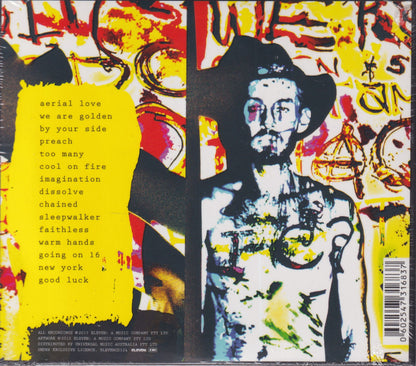 aerial love
we are golden
by your side
preach
too many
cool on fire
imagination
dissolve
chained
sleepwalker
faithless
warm hands
going on 16
new york
good luck
ALL RECORDINGS ℗2015 ELEVEN: A MUSIC COMPANY PTY LTD
ARTWORK ©2015 ELEVEN: A MUSIC COMPANY PTY LTD
DISTRIBUTED BY UNIVERSAL MUSIC AUSTRALIA PTY LTD
UNDER EXCLUSIVE LICENCE. ELEVEN
0602547316837